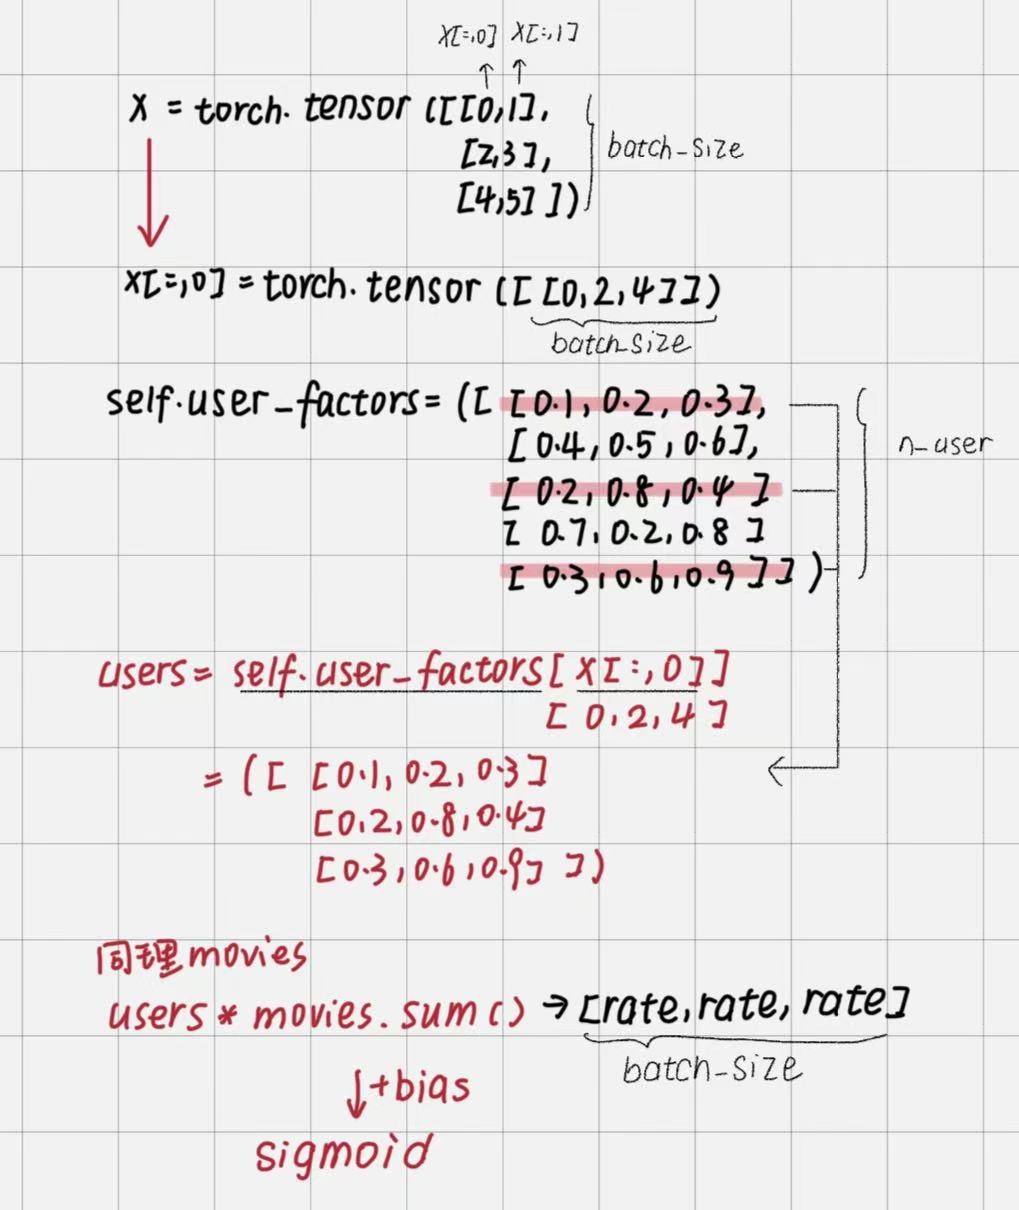 x[:,0] x[:,1]
x = torch.tensor([[0,1],
[2,3],
[4,5]])
batch_size
x[:,0] = torch.tensor([[0,2,4]])
batch_size
self.user_factors=([[0.1,0.2,0.3],
[0.4,0.5,0.6],
[0.2,0.8,0.4]
[0.7,0.2,0.8]
[0.3,0.6,0.9]])
n_user
users= self.user_factors[x[:,0]]
[0,2,4]
=([[0.1,0.2,0.3]
[0.2,0.8,0.4]
[0.3,0.6,0.9]])
同理movies
users* movies.sum() → [rate,rate,rate]
batch_size
↓+bias
sigmoid